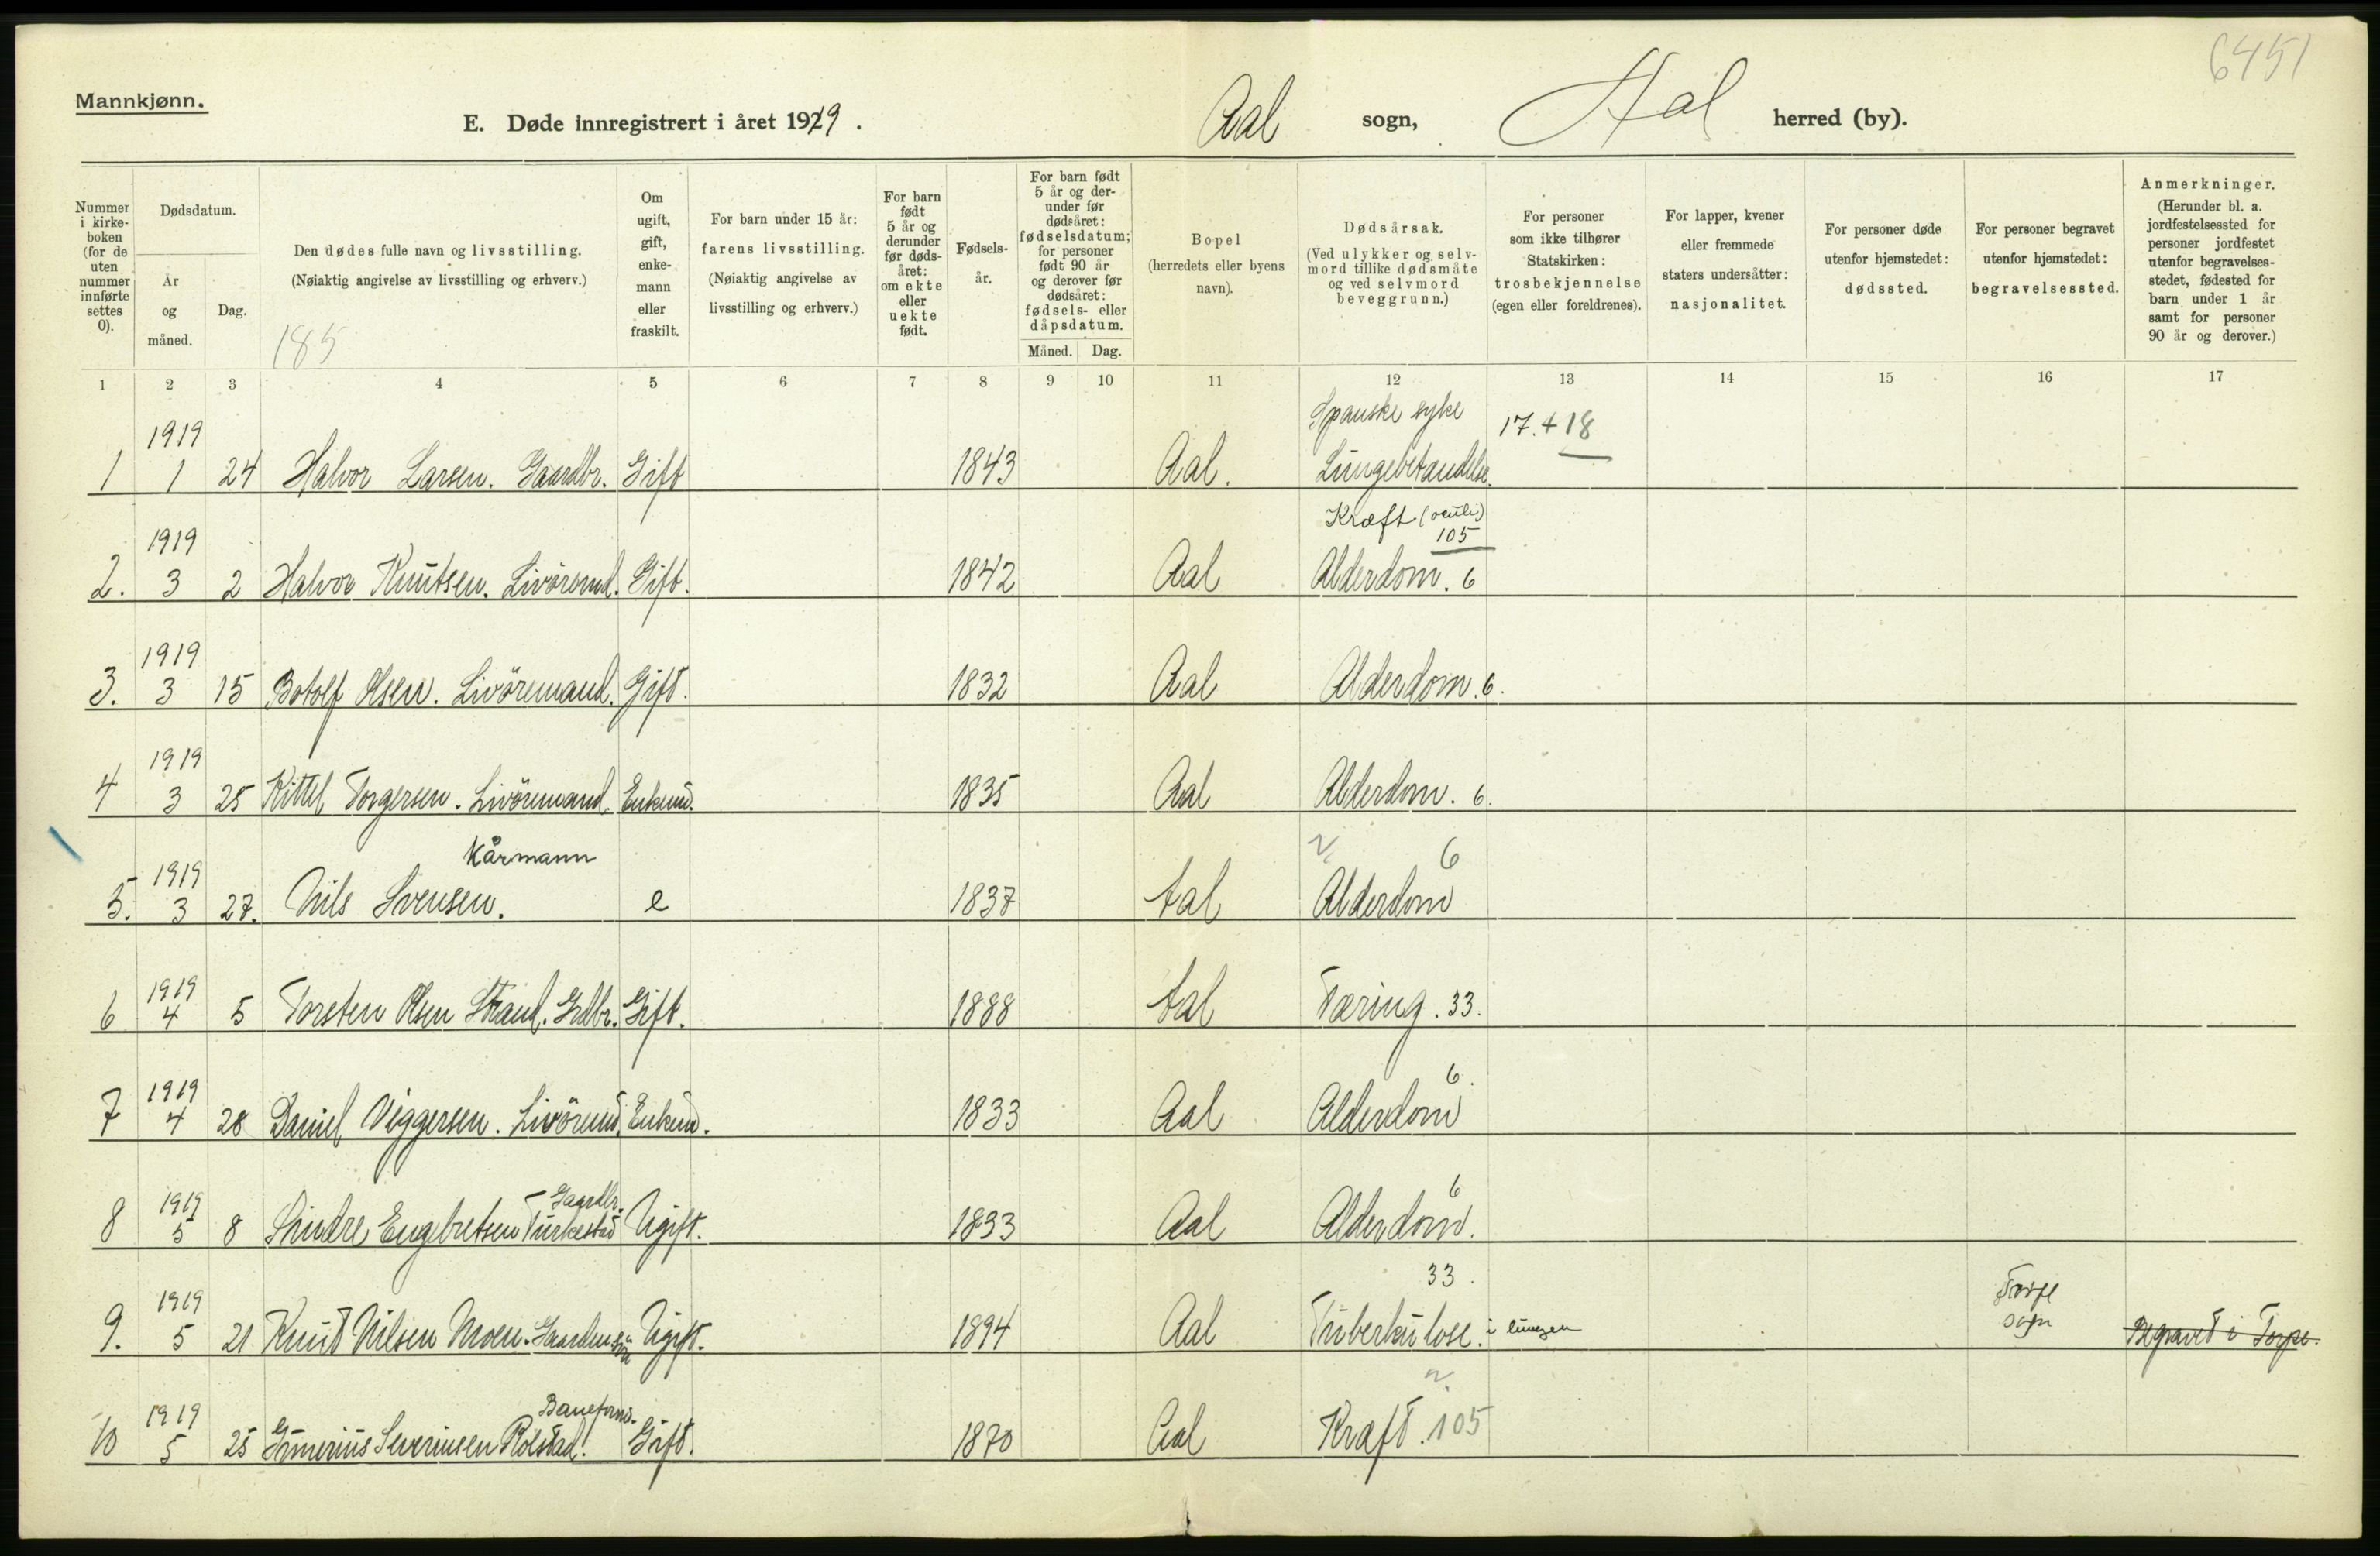 6451
Mannkjønn.
E. Døde innregistrert i året 1919. Aal sogn, Aal herred (by).
Nummer i kirkeboken (for de uten nummer innførte settes 0).
Dødsdatum.
År og måned.
Dag.
Den dødes fulle navn og livsstilling.
(Nøiaktig angivelse av livsstilling og erhverv.)
185
Om ugift, gift, enkemann eller fraskilt.
For barn under 15 år: farens livsstilling.
(Nøiaktig angivelse av livsstilling og erhverv.)
For barn født 5 år og derunder før dødsåret: om ekte eller uekte født.
Fødselsår.
For barn født 5 år og derunder før dødsåret: fødselsdatum; for personer født 90 år og derover før dødsåret: fødsels- eller dåpsdatum.
Måned. Dag.
Bopel
(herredets eller byens navn).
Dødsårsak.
(Ved ulykker og selvmord tillike dødsmåte og ved selvmord beveggrunn.)
For personer som ikke tilhører Statskirken: trosbekjennelse (egen eller foreldrenes).
For lapper, kvener eller fremmede staters undersåtter: nasjonalitet.
For personer døde utenfor hjemstedet: dødssted.
For personer begravet utenfor hjemstedet: begravelsessted.
Anmerkninger.
(Herunder bl. a. jordfestelsessted for personer jordfestet utenfor begravelsesstedet, fødested for barn under 1 år samt for personer 90 år og derover.)
1 2 3 4 5 6 7 8 9 10 11 12 13 14 15 16 17
1919 Spanske syke 17.+18
1 1 24 Halvor Larsen. Gaardbr. Gift 1843 Aal. Lungebetændelse.
1919 Kræft (oculi) 105
2. 3 2 Halvor Knutsen. Livöremd. Gift. 1842 Aal Alderdom. 6
1919
3. 3 15 Botolf Olsen. Livöremand. Gift. 1832 Aal Alderdom. 6.
1919
4 3 25 Kittel Torgersen. Livöremand. Enkem. 1835 Aal Alderdom. 6.
1919 Kårmann 6
5. 3 27. Nils Svensen. e 1837 Aal Alderdom
1919
6 4 5 Torsten Olsen Strand. Grdbr. Gift. 1888 Aal Tæring. 33.
1919 6.
7 4 28 Daniel Viggersen. Livöremd. Enkem. 1833 Aal Alderdom
1919 Gaardbr. 6
8 5 8 Sindre Engebretsen Turkestad Ugift. 1833 Aal Alderdom.
1919 33. Torpe sogn
9. 5 21 Knut Nilsen Moen. Ugift. 1894 Aal Tuberkulose. i lungen Begravet i Torpe.
1919
10 5 25 Severinsen Rolstad. Gift. 1870 Aal Kræft. 105